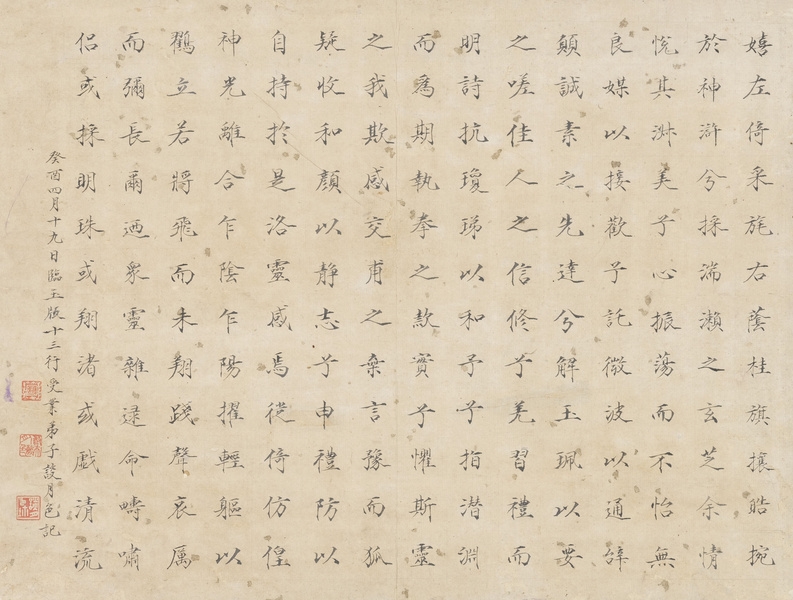 嬉左倚采旄右蔭桂旗攘皓捥
於神滸兮採湍瀨之玄芝余情
悅其淑美兮心振蕩而不怡無
良媒以接歡兮託微波以通辭
願誠素之先達兮解玉珮以要
之嗟佳人之信修兮羌習禮而
明詩抗瓊珶以和予兮指潛淵
而為期執拳之款實兮懼斯靈
之我欺感交甫之棄言豫而狐
疑收和顏以靜志兮申禮防以
自持於是洛靈感焉徙倚仿偟
神光離合乍陰乍陽擢輕軀以
鸛立若將飛而未翔踐聲哀厲
而彌長爾迺眾靈雜遝命疇嘯
侶或採明珠或翔渚或戲清流
癸酉四月十九日臨玉版十三行受業弟子談月色記